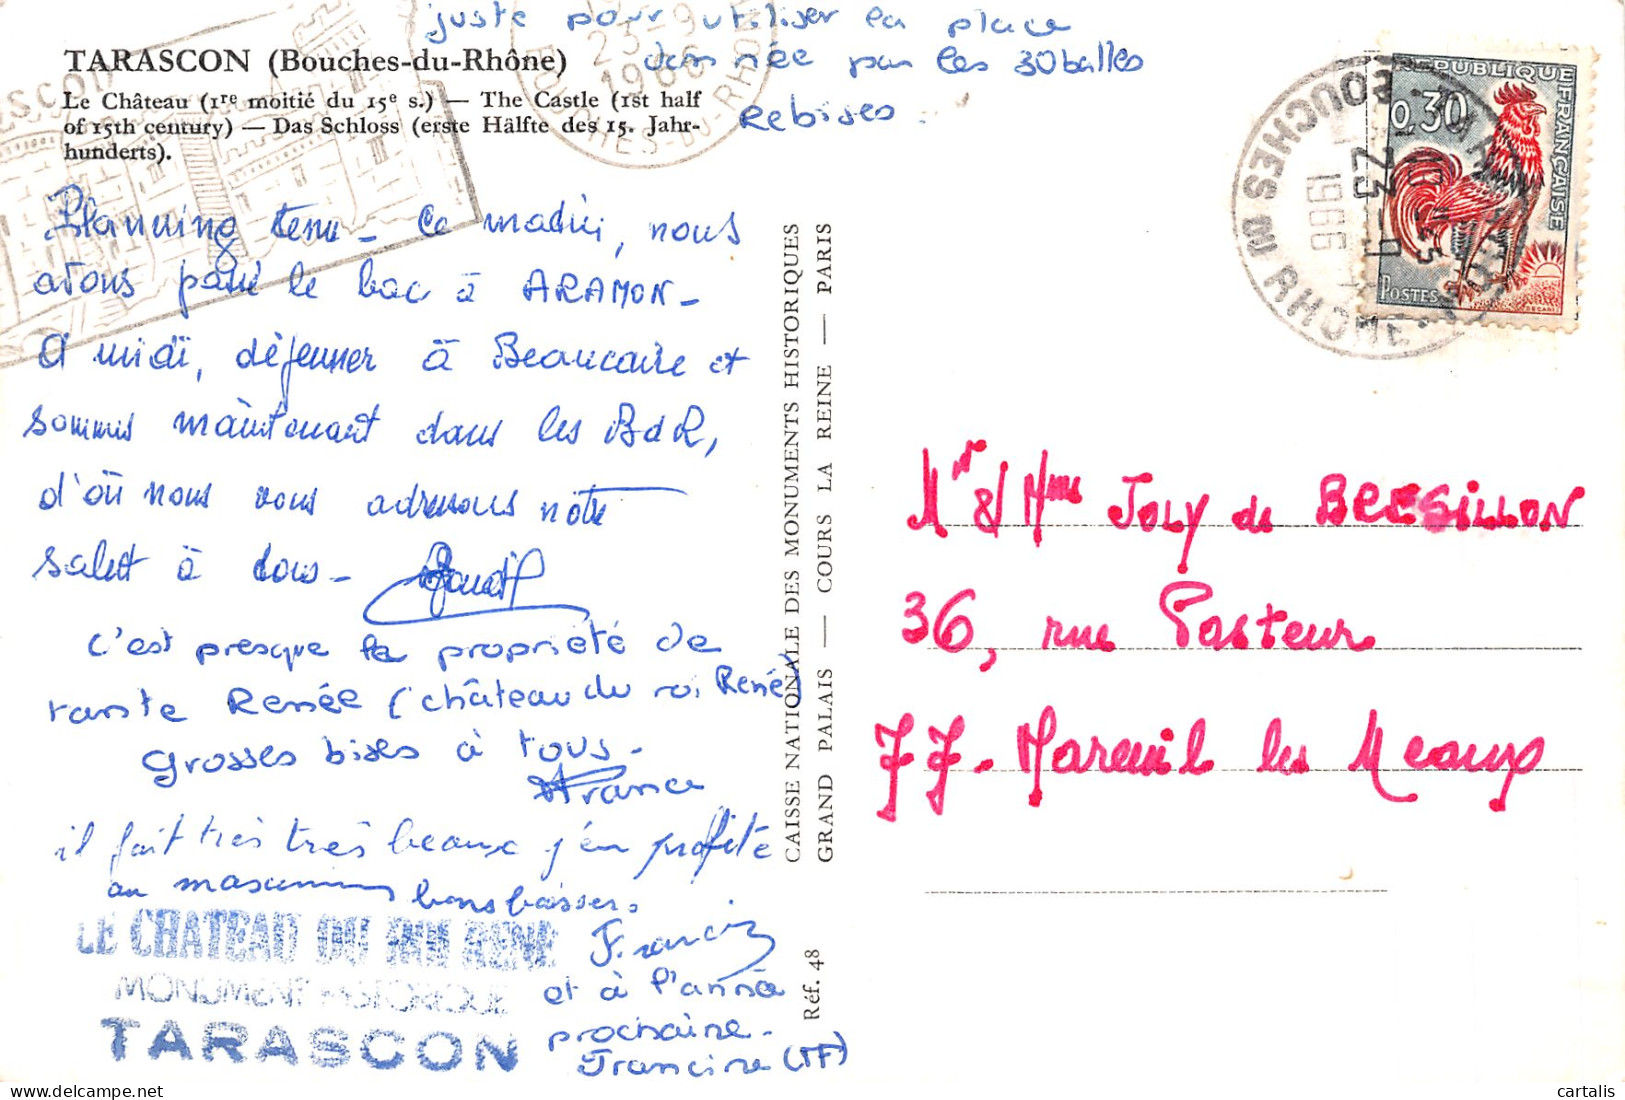 juste pour utiliser la place
donnée par les 30 balles
Rebises.
TARASCON (Bouches-du-Rhône)
Le Château (1re moitié du 15e s.) — The Castle (1st half
of 15th century) — Das Schloss (erste Hälfte des 15. Jahr-
hunderts).
Planning tenu - Ce matin, nous
avons passé le bac à ARAMON -
A midi, déjeuner à Beaucaire et
sommes maintenant dans les BdR,
d'où nous vous adressons notre
salut à tous -
C'est presque la propriété de
tante Renée (château du roi René)
grosses bises à tous -
France
il fait très très beau j'en profite
au maximum bons baisers.
Francine
et à l'année
prochaine -
Francine (TF)
LE CHATEAU DU ROI RENE
MONUMENT HISTORIQUE
TARASCON
CAISSE NATIONALE DES MONUMENTS HISTORIQUES
GRAND PALAIS — COURS LA REINE — PARIS
Réf. 48
23-9
1966
BOUCHES-DU-RHONE
BOUCHES DU RHONE
23-9
1966
REPUBLIQUE FRANÇAISE
0,30
POSTES
DECARIS
Mr & Mme JOLY de BRESILLON
36, rue Pasteur
77 - Mareuil les Meaux
cartalis